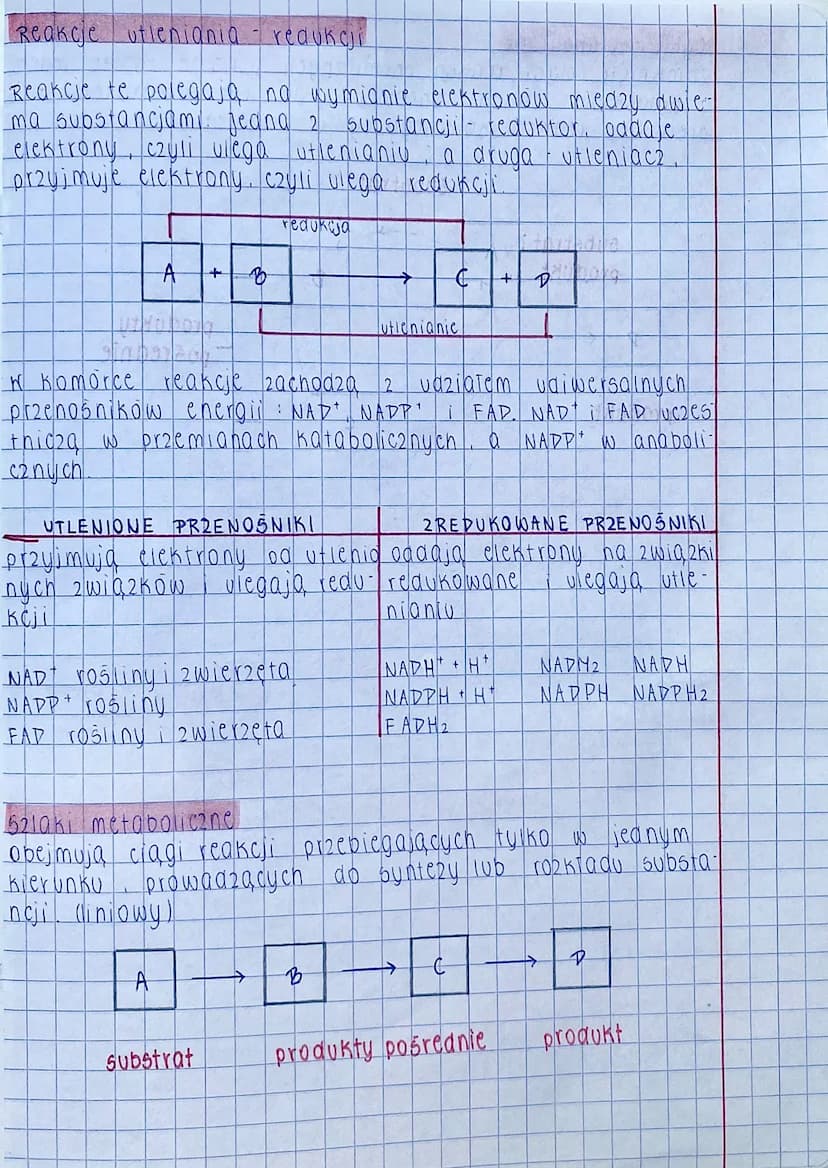 Reakcje utleniania - redukcji
Reakcje te polegają na wymianie elektronów między dwie-
ma substancjami. Jedna z substancji - reduktor, oddaje
elektrony, czyli ulega utlenianiu, a druga - utleniacz,
przyjmuje elektrony, czyli ulega redukcji.
redukcja
A + B → C + D
utlenianie
W komórce reakcje zachodzą z udziałem udiwersalnych
przenośników energii : NAD+, NADP+ i FAD. NAD+ i FAD uczes
tniczą w przemianach katabolicznych, a NADP+ w anaboli-
cznych.
UTLENIONE PRZENOŚNIKI ZREDUKOWANE PRZENOŚNIKI
przyjmują elektrony od utlenio oddają elektrony na związki
nych związków i ulegają redu- redukowane i ulegają utle-
kcji nianiu
NAD+ rośliny i zwierzęta NADH+ + H+ NADH2 NADH
NADP+ rośliny NADPH + H+ NADPH NADPH2
FAD rośliny i zwierzęta FADH2
Szlaki metaboliczne
Obejmują ciągi reakcji przebiegających tylko w jednym
kierunku, prowadzących do syntezy lub rozkładu substa-
ncji. (liniowy)
A → B → C → D
substrat produkty pośrednie produkt